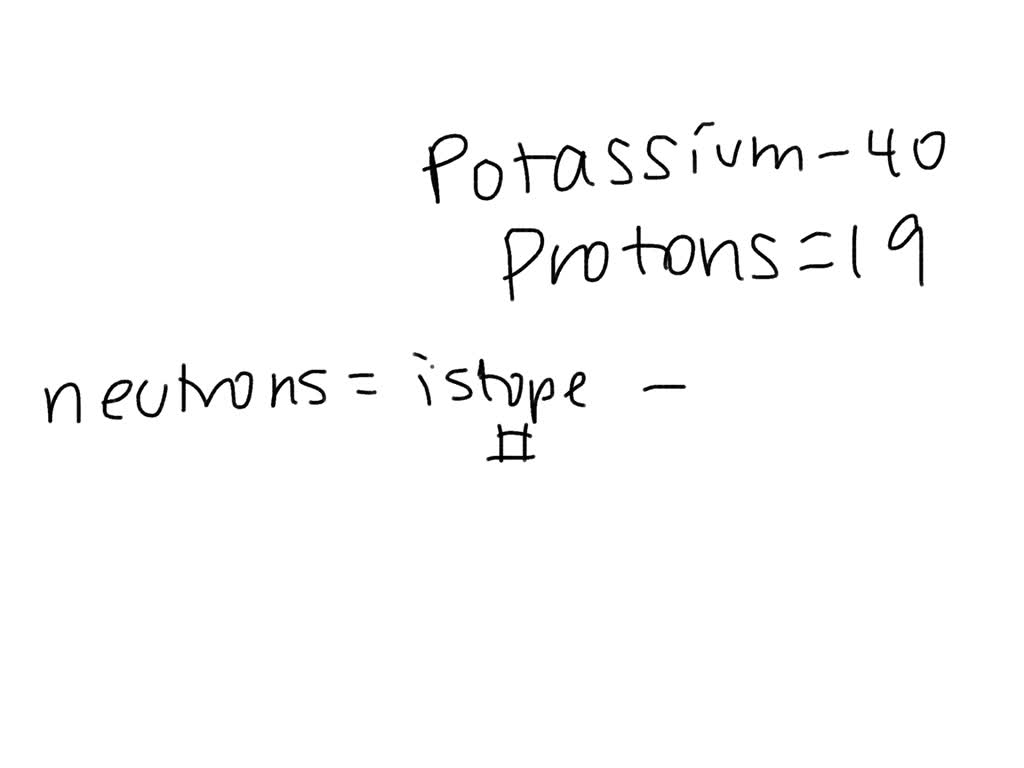 Potassium-40
Protons=19
neutrons = istope -
#